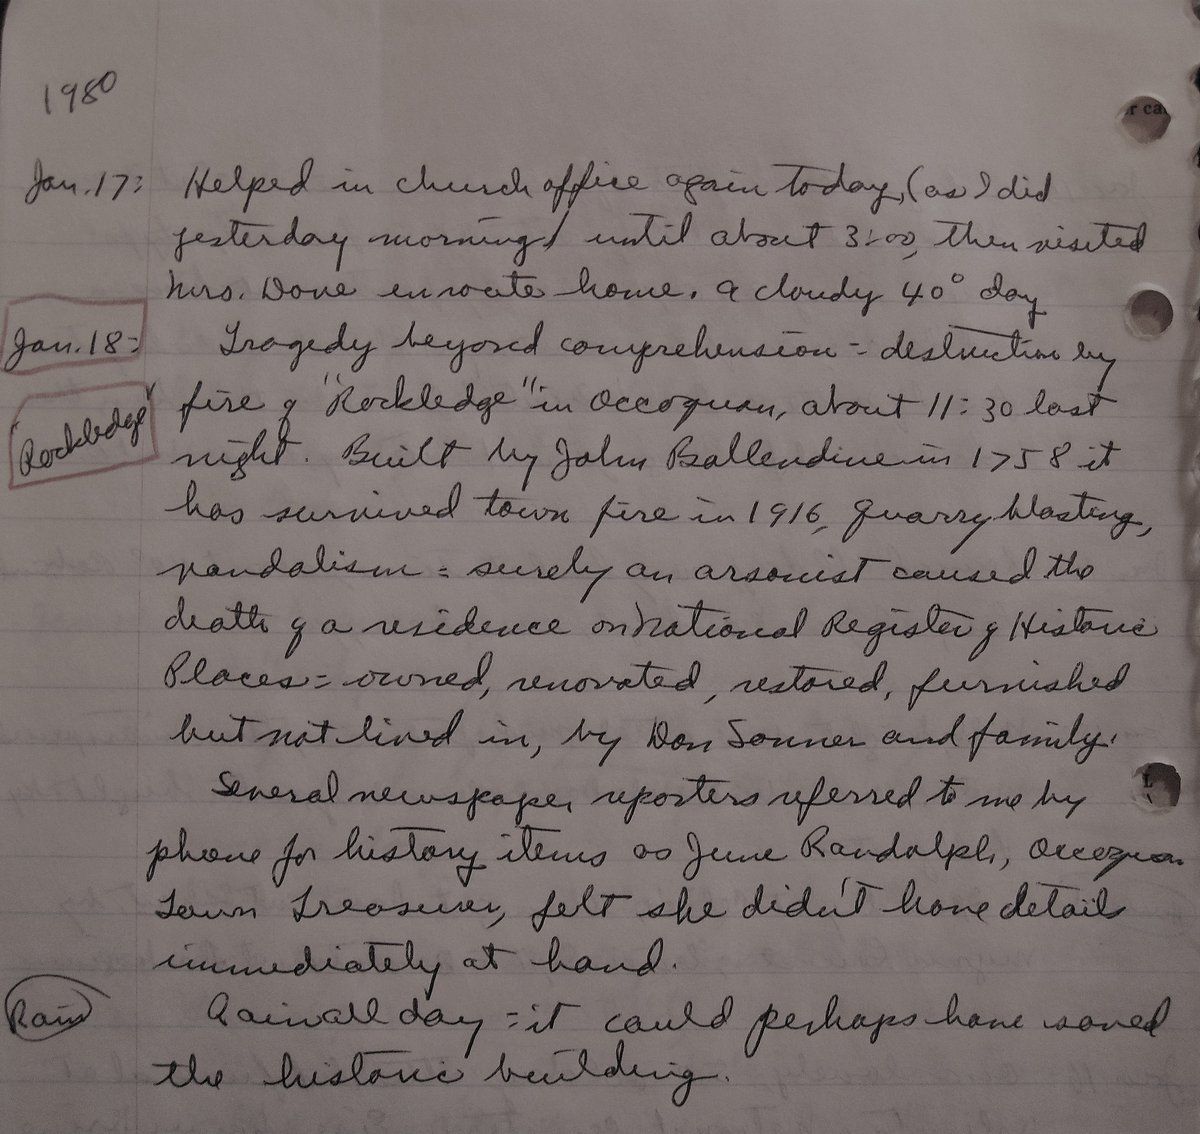 1980
Jan. 17: Helped in church office again today, (as I did
yesterday morning) until about 3:00, then visited
Mrs. Dove enroute home. A cloudy 40° day
Jan. 18: Tragedy beyond comprehension = destruction by
fire of "Rockledge" in Occoquan, about 11:30 last
Rockledge night. Built by John Ballendine in 1758 it
has survived town fire in 1916, quarry blasting,
vandalism = surely an arsonist caused the
death of a residence on National Register of Historic
Places = owned, renovated, restored, furnished
but not lived in, by Don Sonner and family.
Several newspaper reporters referred to me by
phone for history items as June Randolph, Occoquan
Town Treasurer, felt she didn't have details
immediately at hand.
Rain Rain all day = it could perhaps have saved
the historic building.